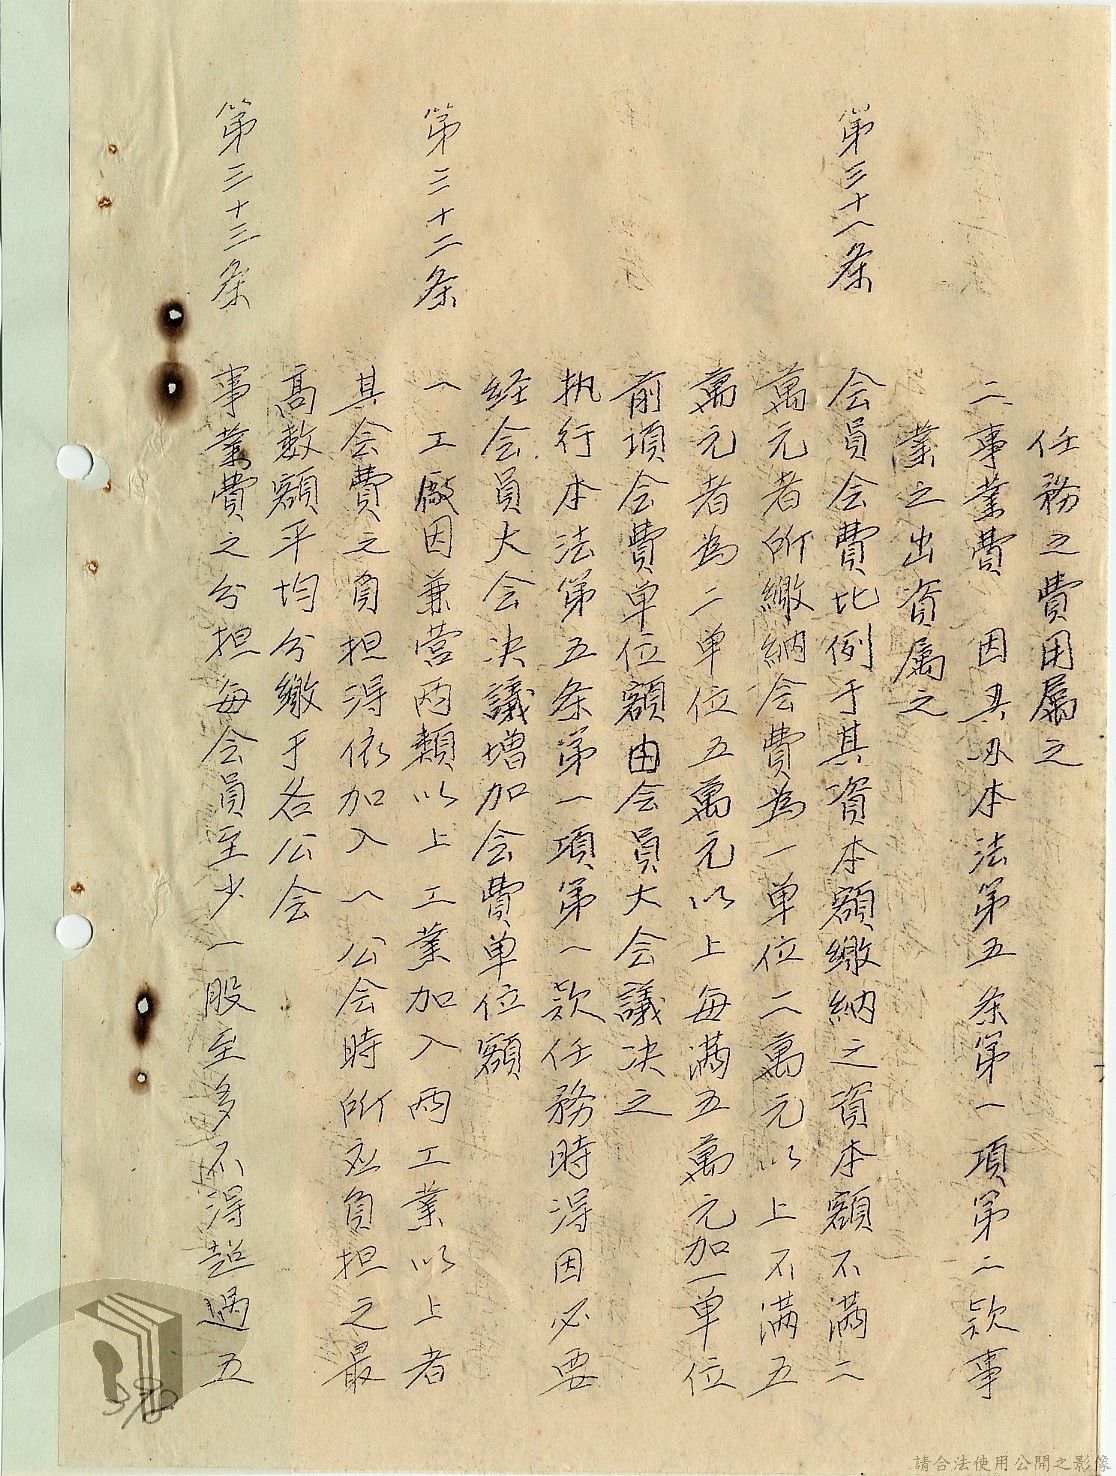 任務之費用屬之
二事業費　因具办本法第五条第一項第二款事
業之出資属之
第三十一条　会員会費比例于其資本額繳納之資本額不滿二
萬元者所繳納会費為一单位二萬元以上不滿五
萬元者為二单位五萬元以上每滿五萬元加一单位
前項会費单位額由会員大会議决之
执行本法第五条第一項第一款任務時得因必要
経会員大会决議增加会費单位額
第三十二条　一工廠因兼营両類以上工業加入両工業以上者
其会費之負担得依加入一公会時所应負担之最
高数額平均分繳于各公会
第三十三条　事業費之分担每会員至少一股至多不得超過五
390
請合法使用公開之影像